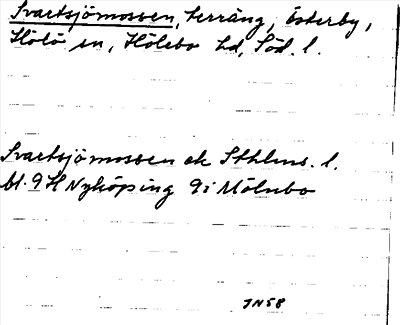 Svartsjömossen, terräng, Österby,
Hölö sn, Hölebo hd, Söd. l.
Svartsjömossen ek Sthlms. l.
bl. 9H Nyköping 9i Mölnbo
JN58